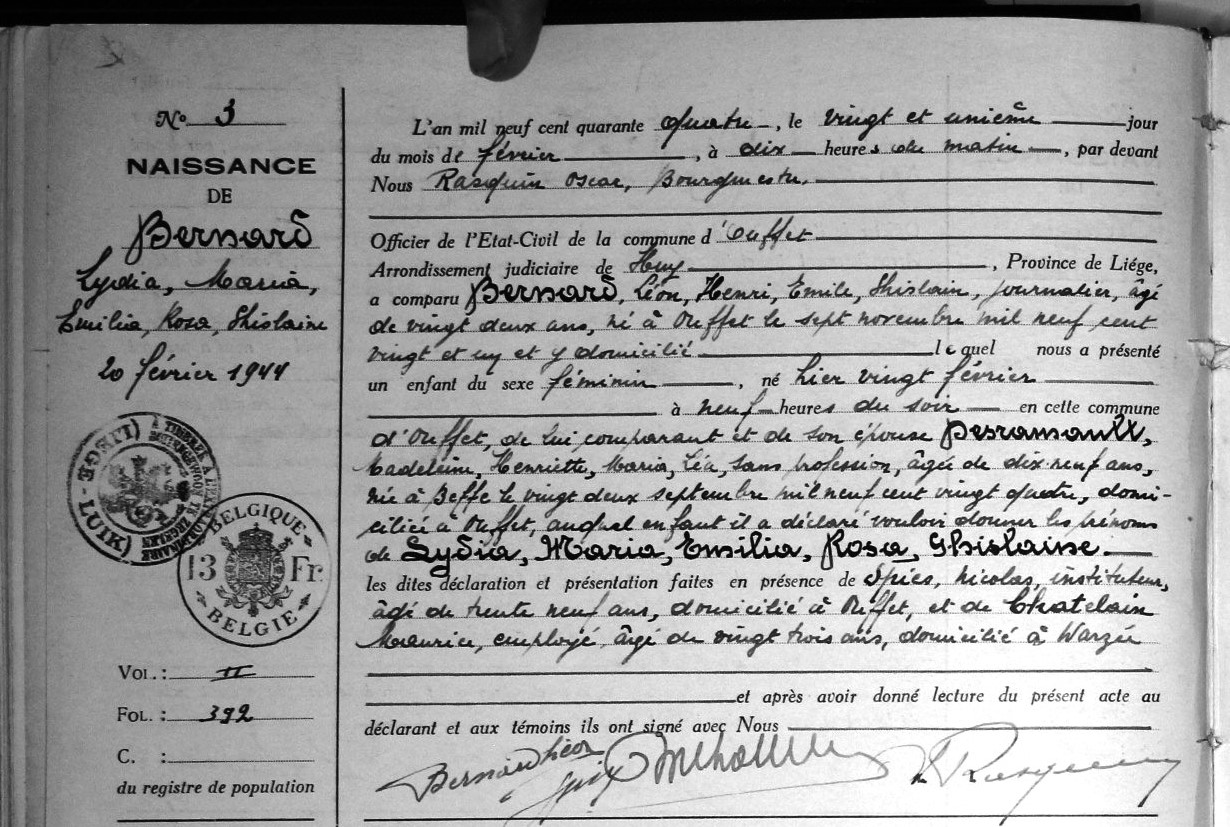 N° 3
NAISSANCE
DE
Bernard
Lydia, Maria,
Emilia, Rosa, Ghislaine
20 février 1944
LIÈGE - LUIK
BELGIQUE
13 Fr.
BELGIE
VOL. : II
FOL. : 392
C. :
du registre de population
L'an mil neuf cent quarante quatre, le vingt et unième jour
du mois de février, à dix heures du matin, par devant
Nous Rasquin Oscar, Bourgmestre.
Officier de l'Etat-Civil de la commune d'Ouffet
Arrondissement judiciaire de Huy, Province de Liége,
a comparu Bernard, Léon, Henri, Emile, Ghislain, journalier, âgé
de vingt deux ans, né à Ouffet le sept novembre mil neuf cent
vingt et un et y domicilié lequel nous a présenté
un enfant du sexe féminin, né hier vingt février
à neuf heures du soir en cette commune
d'Ouffet, de lui comparant et de son épouse Desramault,
Madeleine, Henriette, Maria, Léa, sans profession, âgée de dix-neuf ans,
née à Beffe le vingt deux septembre mil neuf cent vingt quatre, domi-
ciliée à Ouffet, auquel enfant il a déclaré vouloir donner les prénoms
de Lydia, Maria, Emilia, Rosa, Ghislaine.
les dites déclaration et présentation faites en présence de Spies, Nicolas, instituteur,
âgé de trente neuf ans, domicilié à Ouffet, et de Chatelain
Maurice, employé, âgé de vingt trois ans, domicilié à Warzée
et après avoir donné lecture du présent acte au
déclarant et aux témoins ils ont signé avec Nous
Bernard Léon